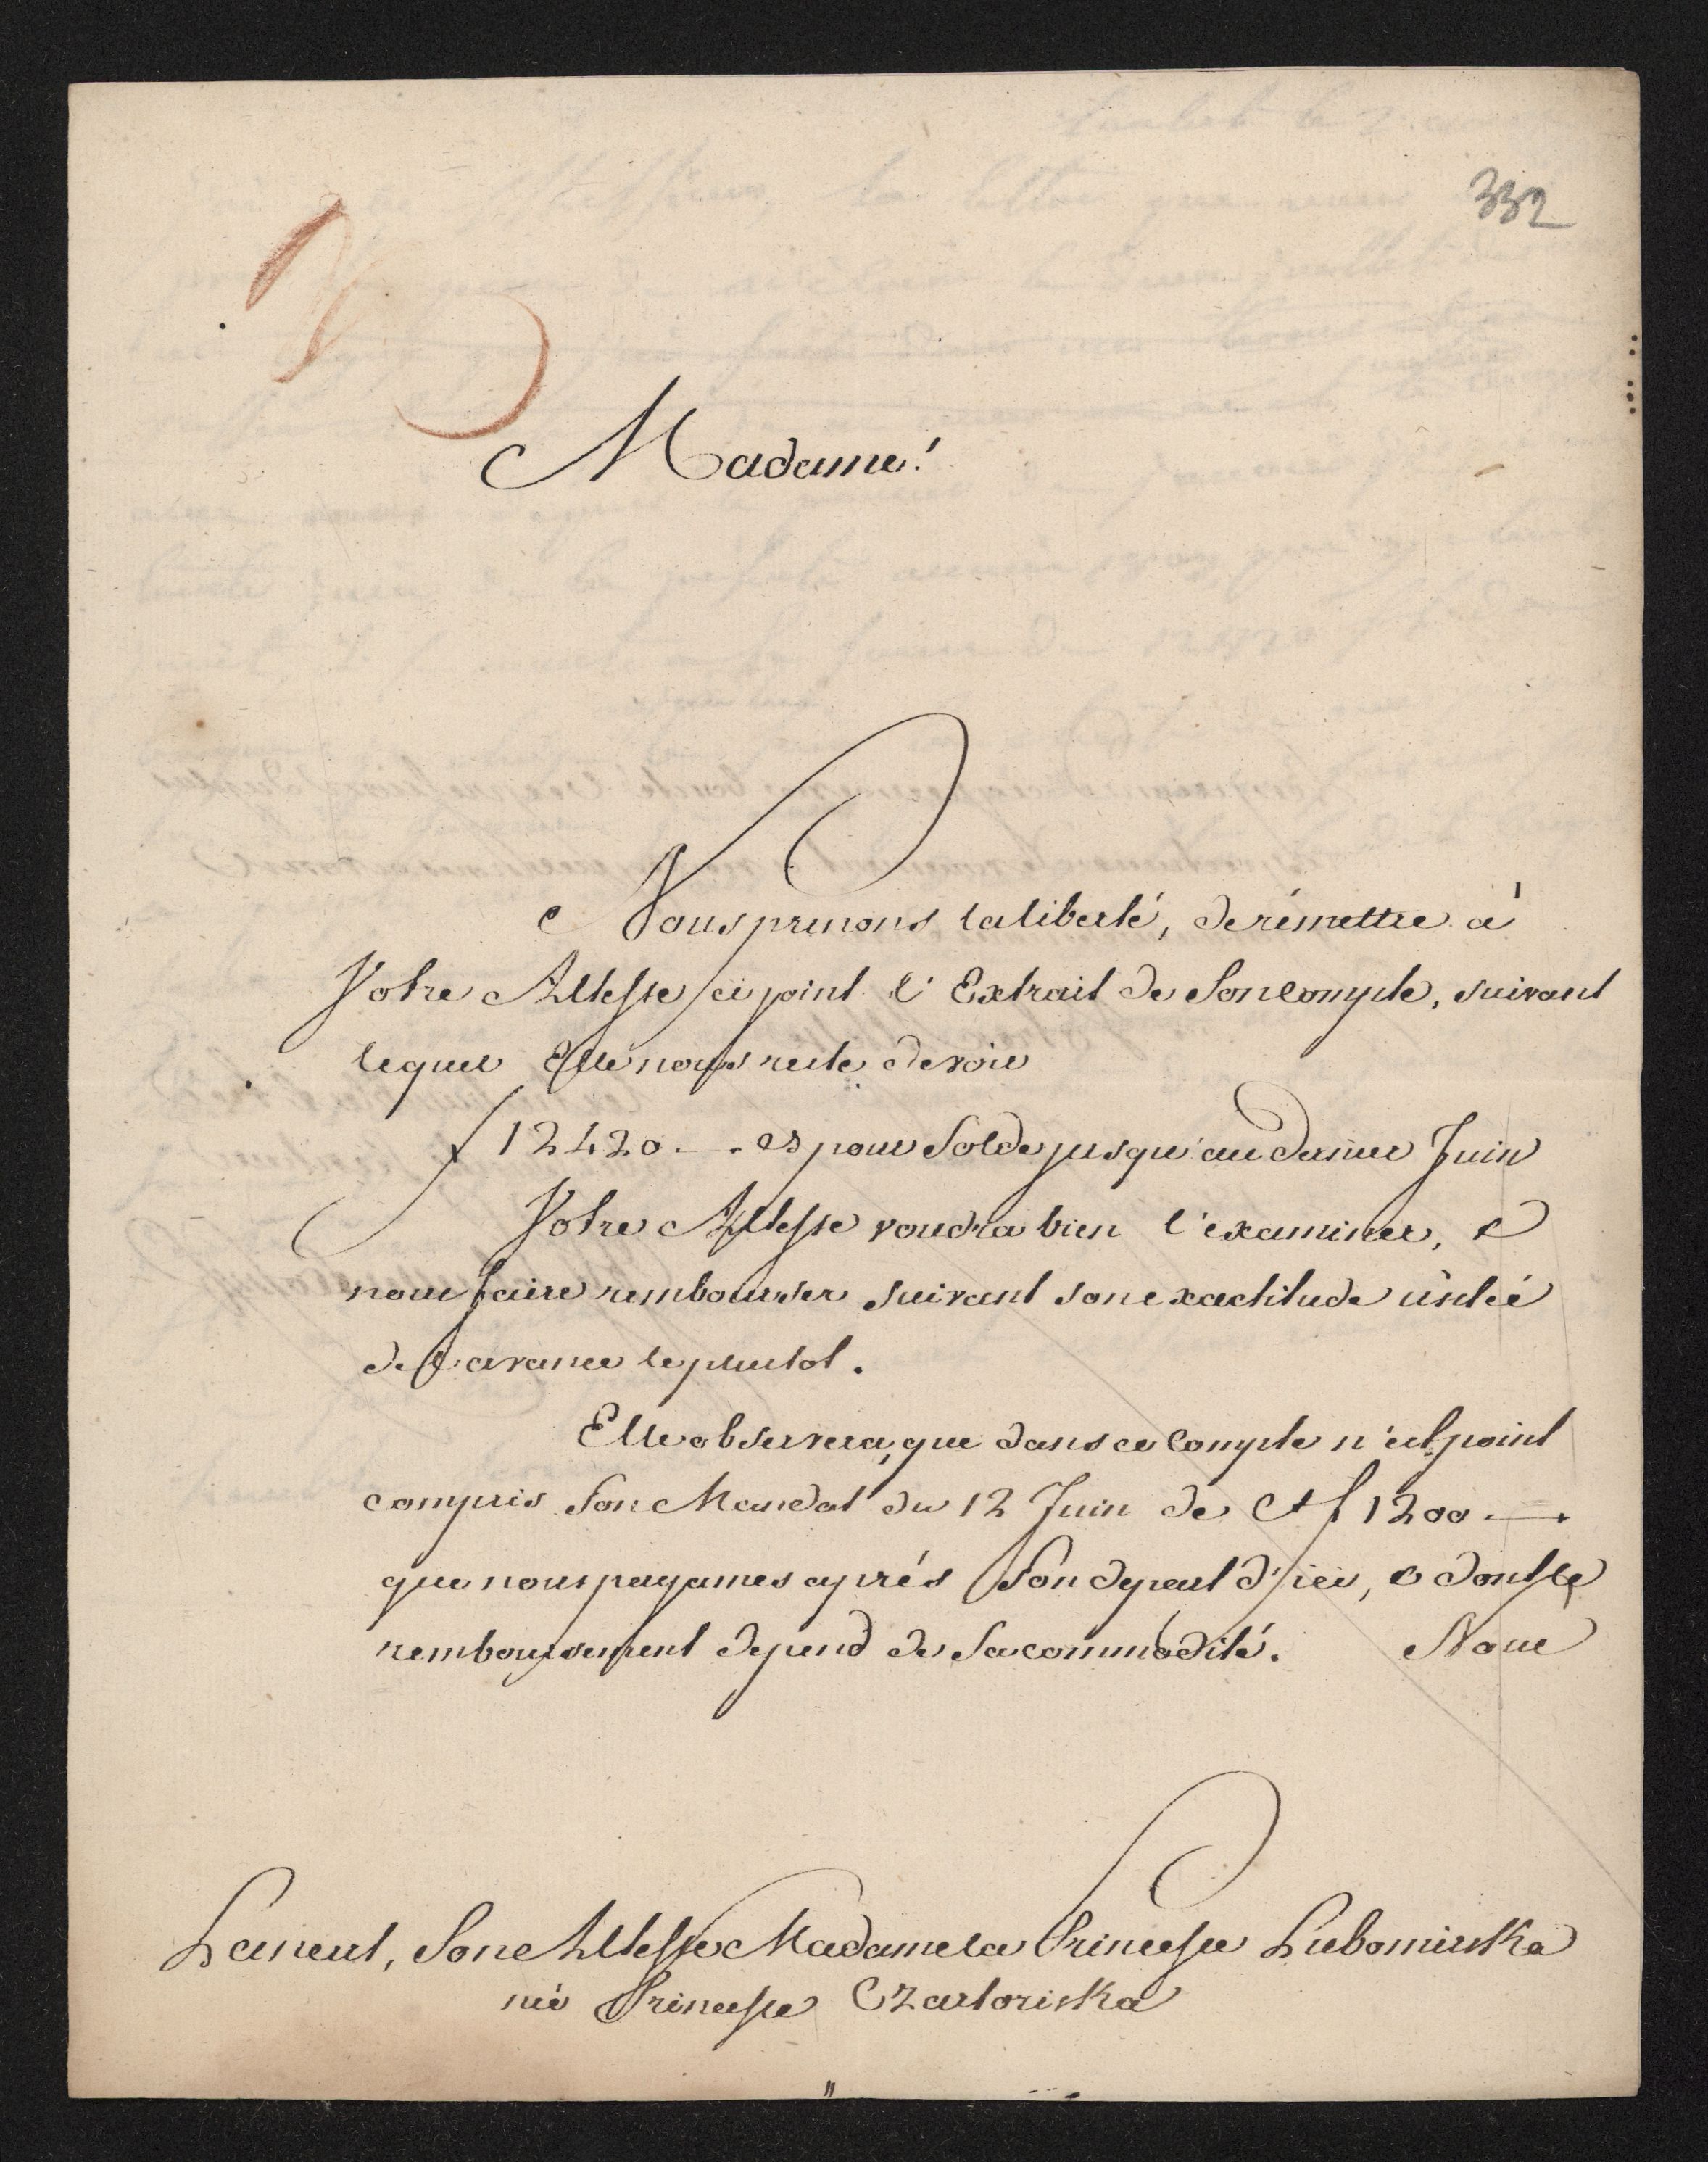 332
Madame!
Nous prenons la liberté, de rémettre à
Votre Altesse ci joint l'Extrait de Son compte, suivant
lequel Elle nous reste devoir
f 12420.—. pour Solde jusqu'au dernier Juin
Votre Altesse voudra bien l'examiner, &
nous faire rembourser suivant son exactitude usitée
de l'avance le plustot.
Elle observera, que dans ce Compte n'est point
compris Son Mandat du 12 Juin de f 1200.—.
que nous payames aprés Son depart d'ici, & dont le
remboursement depend de Sa commodité. Nous
Lancut, Son Altesse Madame la Princesse Lubomirska
née Princesse Czartoriska